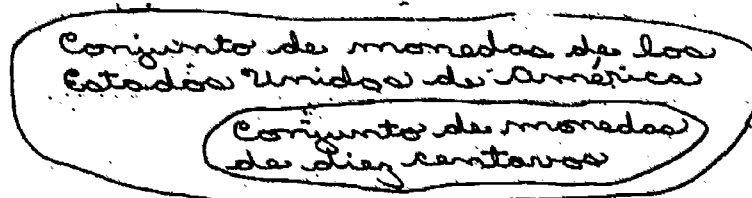 Conjunto de monedas de los
Estados Unidos de América
Conjunto de monedas
de diez centavos